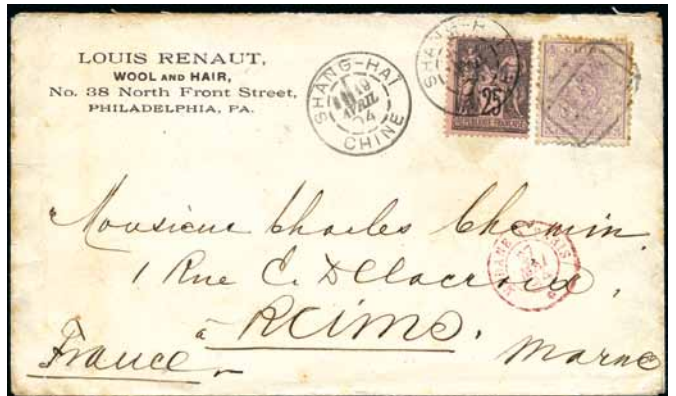 LOUIS RENAUT,
WOOL AND HAIR,
No. 38 North Front Street,
PHILADELPHIA, PA.
SHANG-HAÏ
19
AVRIL
CHINE
SHANG-HAÏ
25
Monsieur Charles Chemin
1 Rue E. Delacroix,
à Reims.
France Marne